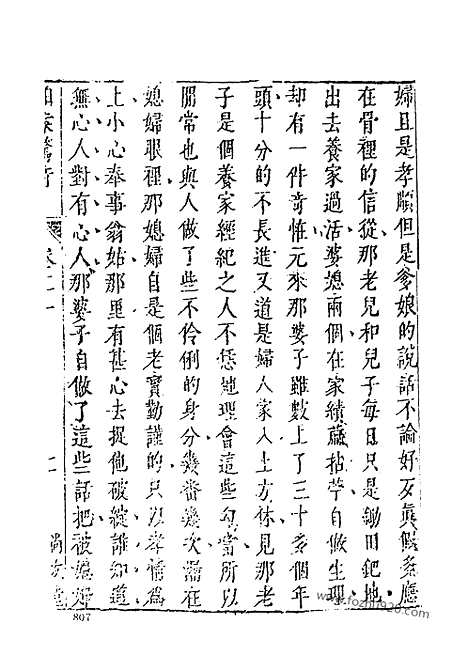 婦且是孝順但是爹娘的說話不論好歹眞假多應
在骨裡的信從那老兒和兒子每日只是鋤田鈀地
出去養家過活婆媳兩個在家績蔴拈苧自做生理
却有一件奇怪元來那婆子雖數上了三十多個年
頭十分的不長進又道是婦人家入土方休見那老
子是個養家經紀之人不恁地理會這些勾當所以
閒常也與人做了些不伶俐的身分幾番幾次漏在
媳婦眼裡那媳婦自是個老實勤謹的只以孝情爲
上小心奉事翁姑那里有甚心去捉他破綻誰知道
無心人對有心人那婆子自做了這些話把被媳婦
拍案驚奇 卷二十 二 尚友堂
807
www.fozhu920.com